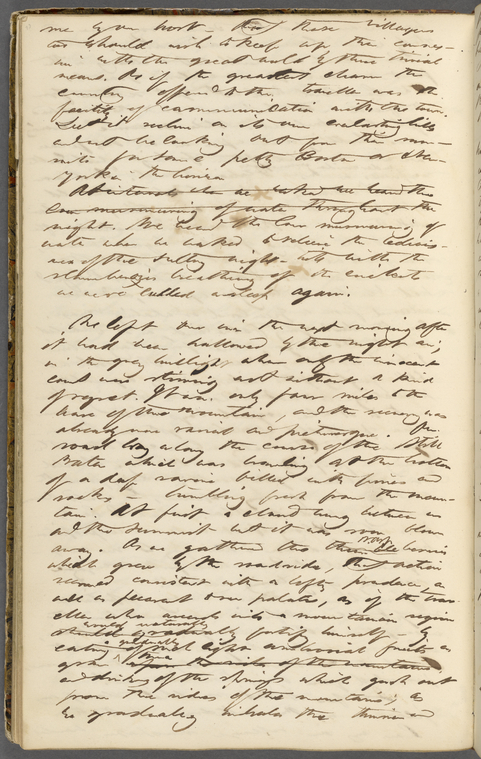 me your host — that these villages
too should wish to keep up the connex-
ion with the great world by these trivial
means. As if the greatest charm the
country offered to the traveller was the
facility of communication with the town.
Let it recline on its own everlasting hills
and not be looking out from the sum-
mits for some petty Boston or New-
york in the horizon
At intervals when we waked we heard the
low murmuring of water throughout the
night. We heard the low murmuring of
water when we waked to relieve the tedious-
ness of the sultry night — with the
slumberous breathing of the crickets
we were lulled asleep again.
We left our inn the next morning after
it had been hallowed by the night air,
in the grey twilight, when only the innocent
cows were stirring not without a kind
of regret. It was only four miles to the
base of the mountain, and the scenery was
already more varied and picturesque. Our
road lay along the course of the Still
water which was brawling at the bottom
of a deep ravine filled with pines and
rocks — tumbling fresh from the moun-
tain. At first a cloud hung between us
and the summit but it was soon blown
away. As we gathered the rasp berries
which grew by the roadside, that action
seemed consistent with a lofty prudence, as
well as pleasant to our palates, as if the trav-
eller who ascends into a mountainous region
would naturally
should gradually fortify himself — by
eating of such light ambrosial fruits as
grow there upon the sides of the mountains
and drinking of the springs which gush out
from the sides of the mountains; as
he gradually inhales the thinner and